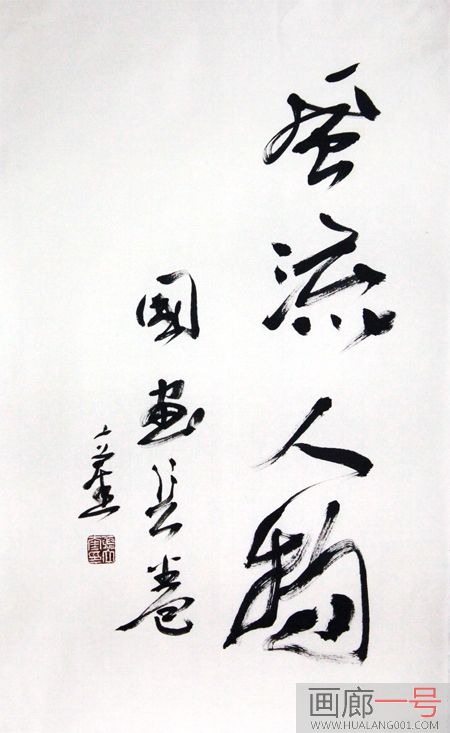 風流人物
國畫長卷
画廊一号
WWW.HUALANG001.COM